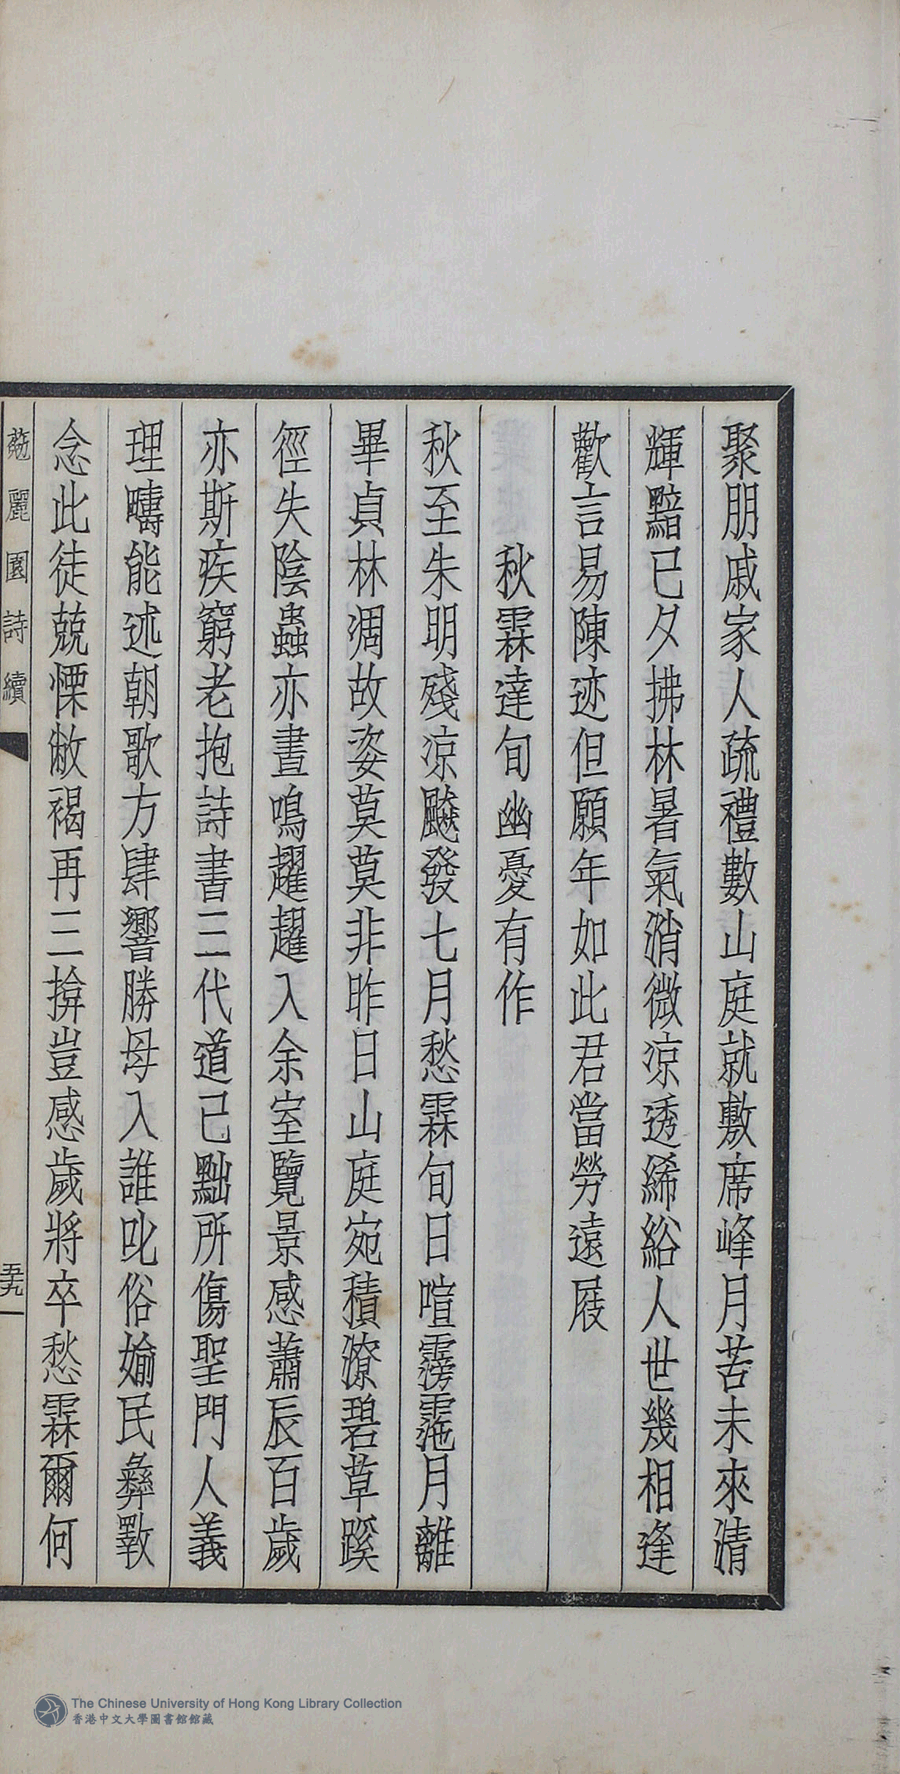 聚朋戚家人疏禮數山庭就敷席峰月苦未來淸
輝黯已夕拂林暑氣消微涼透絺綌人世幾相逢
歡言易陳迹但願年如此君當勞遠屐
秋霖達旬幽憂有作
秋至朱明殘涼飈發七月愁霖旬日喧霶霑月離
畢貞林凋故姿莫莫非昨日山庭宛積潦碧草蹊
徑失陰蟲亦晝鳴趯趯入余室覽景感蕭辰百歲
亦斯疾窮老抱詩書三代道已黜所傷聖門人義
理疇能述朝歌方肆響勝母入誰叱俗媮民彝斁
念此徒兢慄敝褐再三揜豈感歲將卒愁霖爾何
麗園詩續
五九
The Chinese University of Hong Kong Library Collection
香港中文大學圖書館館藏